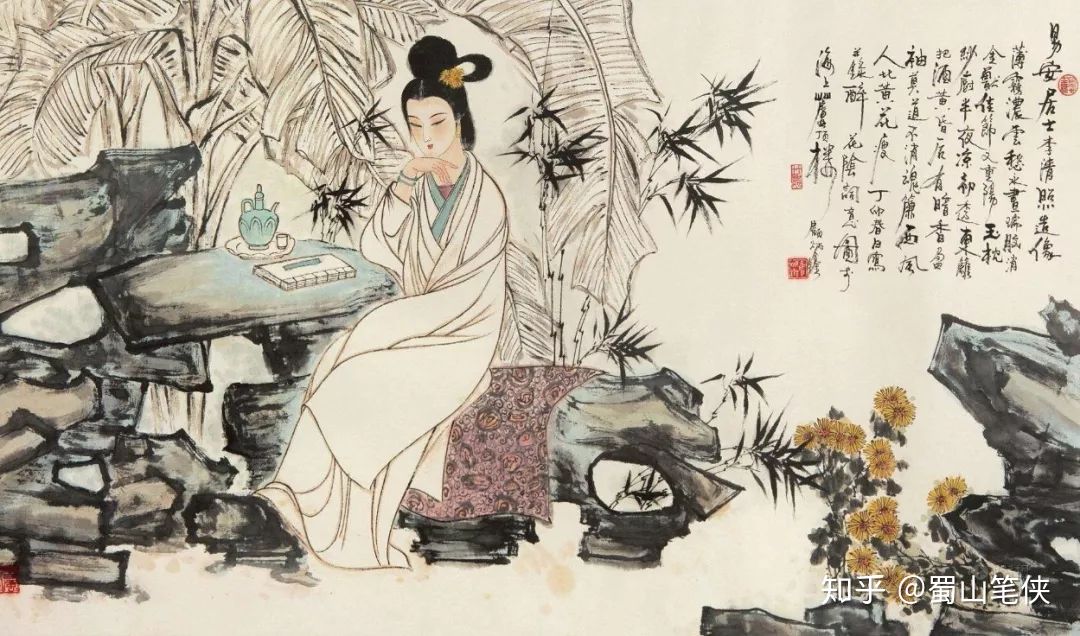 易安居士李清照造像
薄霧濃雲愁永晝瑞腦消
金獸佳節又重陽玉枕
紗廚半夜凉初透東籬
把酒黄昏后有暗香盈
袖莫道不消魂簾西風
人比黄花瘦 丁卯春日寫
並錄醉花陰詞意圖于
海上 樓
顧炳鑫
知乎 @蜀山笔侠